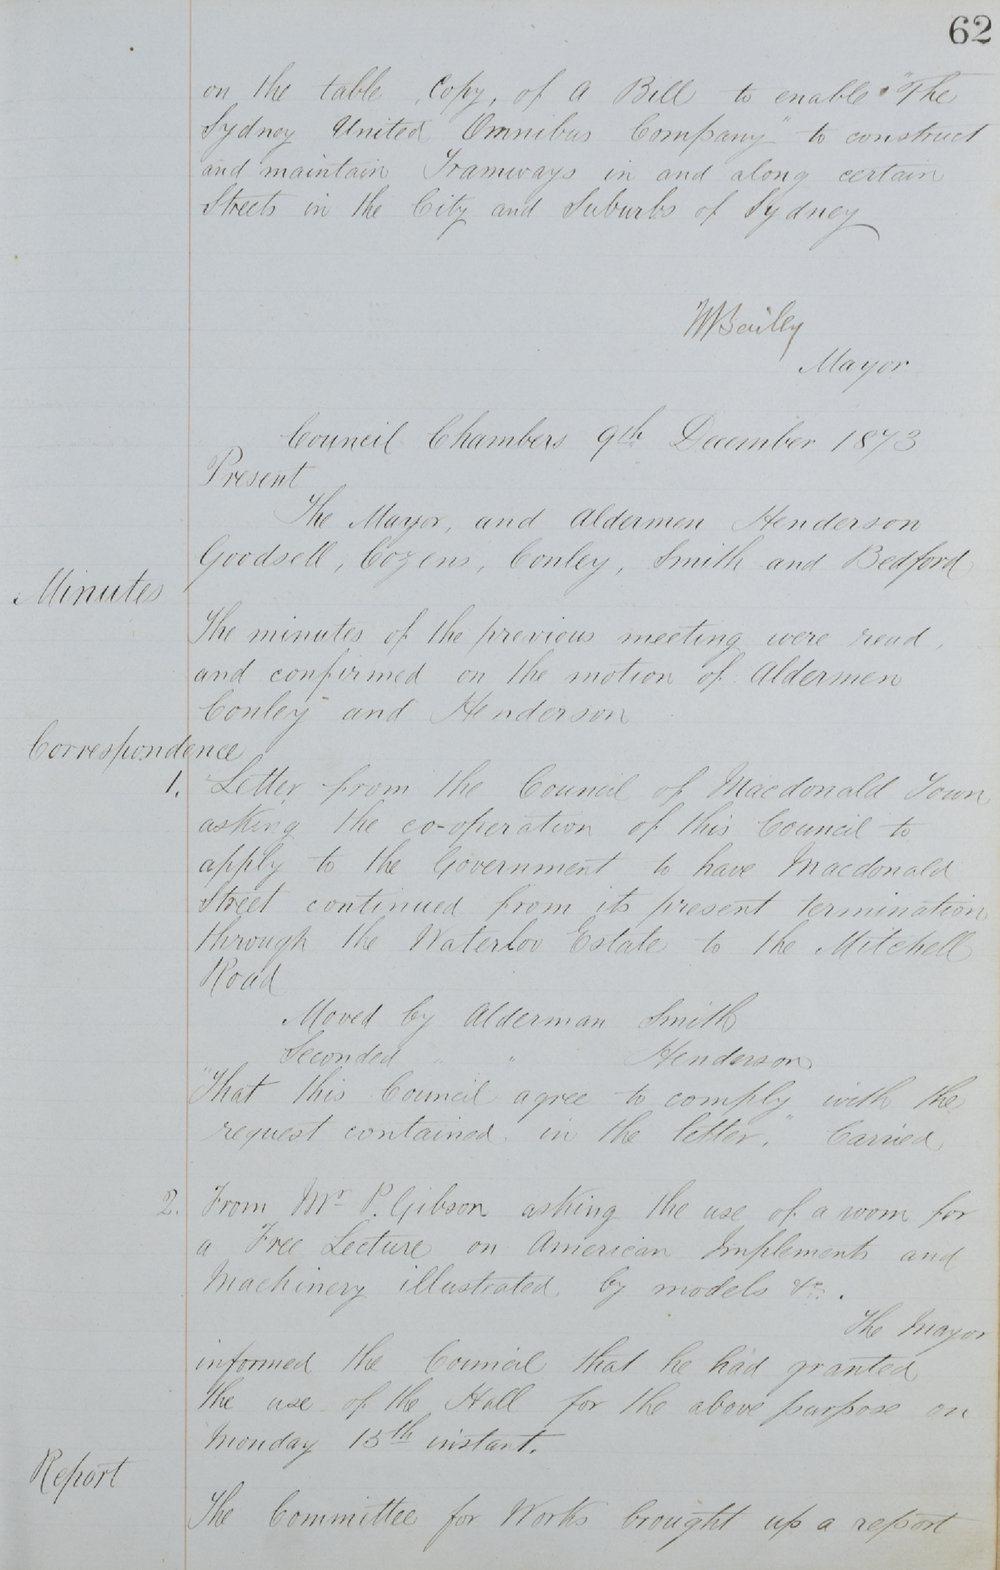 62
on the table copy, of a Bill to enable "The
Sydney United Omnibus Company" to construct
and maintain Tramways in and along certain
Streets in the City and Suburbs of Sydney
WBailey
Mayor
Council Chambers 9th December 1873
Present
The Mayor, and Aldermen Henderson
Goodsell, Cozens, Conley, Smith and Bedford
Minutes
The minutes of the previous meeting were read,
and confirmed on the motion of Aldermen
Conley and Henderson
Correspondence
1. Letter from the Council of Macdonald Town
asking the co-operation of this Council to
apply to the Government to have Macdonald
Street continued from its present termination
through the Waterloo Estate to the Mitchell
Road
Moved by Alderman Smith
Seconded " " Henderson
"That this Council agree to comply with the
request contained in the letter." Carried
2. From Mr P. Gibson asking the use of a room for
a Free Lecture on American Implements and
Machinery illustrated by models &c.
The Mayor
informed the Council that he had granted
the use of the Hall for the above purpose on
Monday 15th instant.
Report
The Committee for Works brought up a report